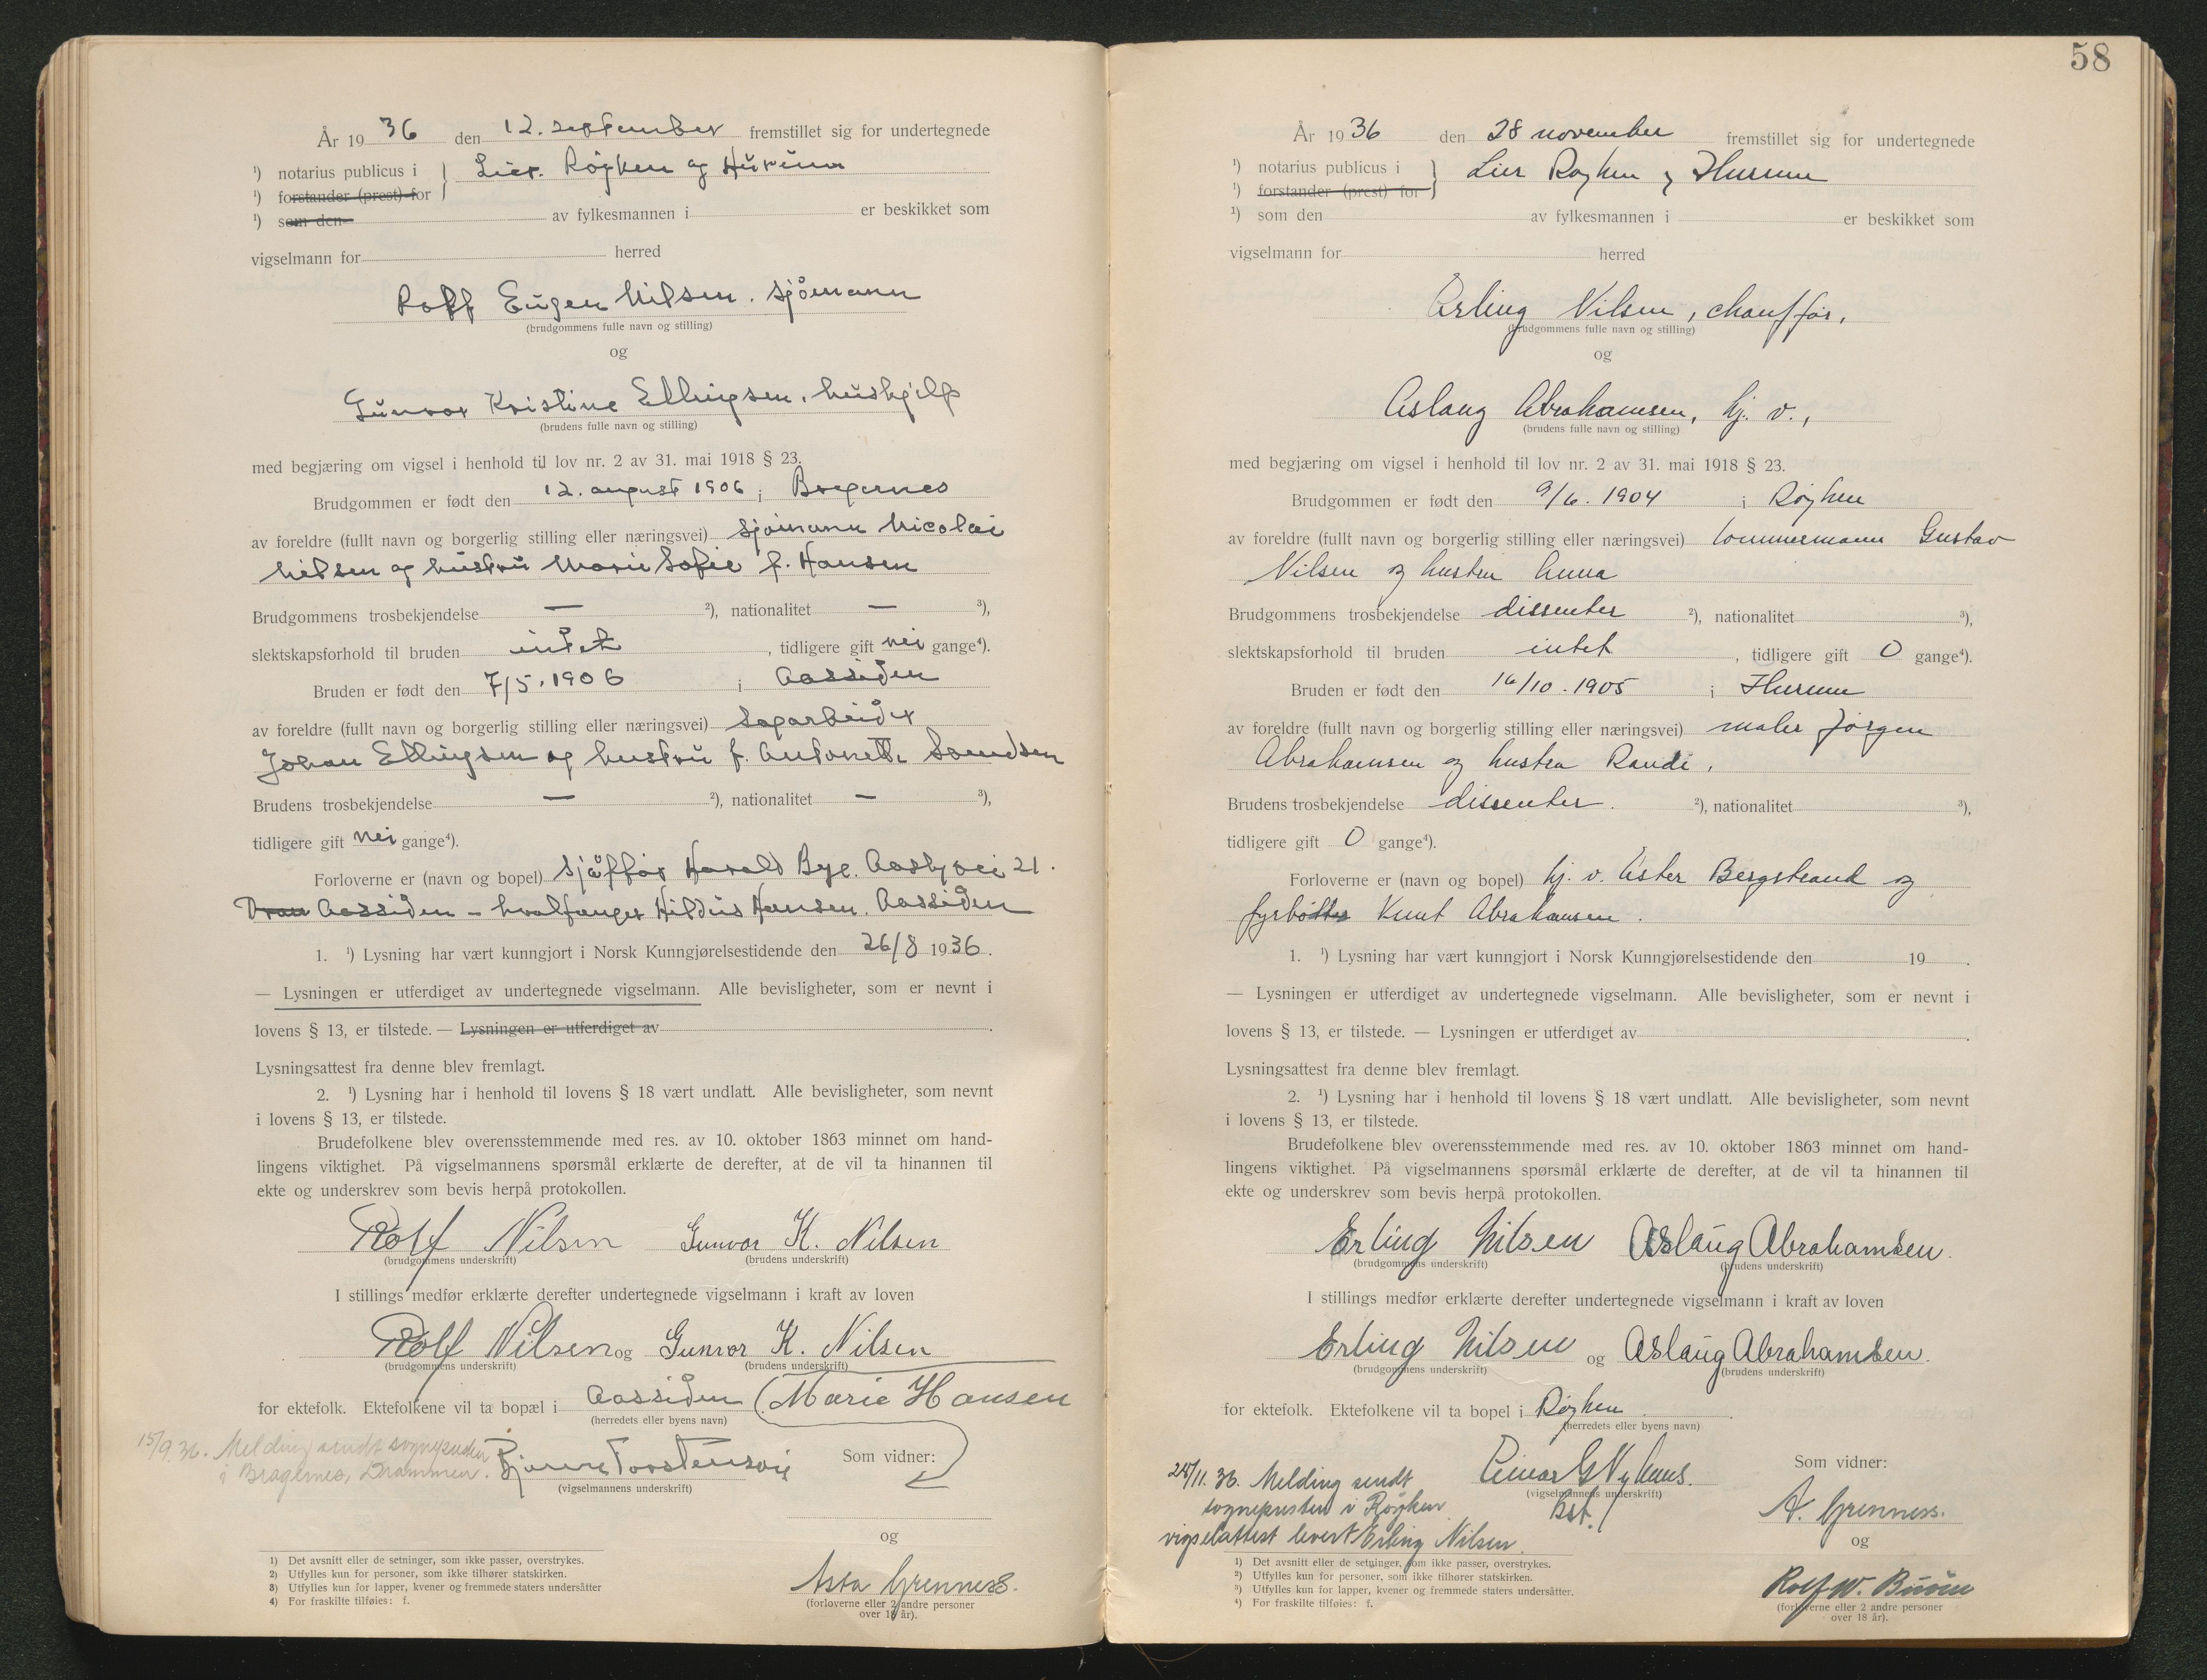 År 1936 den 12. september fremstillet sig for undertegnede
¹) notarius publicus i } Lier. Røyken og Hurum
¹) forstander (prest) for
¹) som den av fylkesmannen i er beskikket som
vigselmann for herred
Rolf Eugen Nilsen. sjømann
(brudgommens fulle navn og stilling)
og
Gunvor Kristine Ellingsen. hushjelp
(brudens fulle navn og stilling)
med begjæring om vigsel i henhold til lov nr. 2 av 31. mai 1918 § 23.
Brudgommen er født den 12. august 1906 i Bragernes
av foreldre (fullt navn og borgerlig stilling eller næringsvei) sjømann Nicolai
Nilsen og hustru Marie Sofie f. Hansen
Brudgommens trosbekjendelse — ²), nationalitet — ³),
slektskapsforhold til bruden intet, tidligere gift nei gange⁴).
Bruden er født den 7/5. 1906 i Aassiden
av foreldre (fullt navn og borgerlig stilling eller næringsvei) Sagarbeider
Johan Ellingsen og hustru f. Antonette
Brudens trosbekjendelse — ²), nationalitet — ³),
tidligere gift nei gange⁴).
Forloverne er (navn og bopel) sjåffør Harald Bye. Aasbyvei 21.
Dram Aassiden - hvalfanger Hildus Hansen. Aassiden
1. ¹) Lysning har vært kunngjort i Norsk Kunngjørelsestidende den 26/8 1936.
— Lysningen er utferdiget av undertegnede vigselmann. Alle bevisligheter, som er nevnt i
lovens § 13, er tilstede. — Lysningen er utferdiget av .
Lysningsattest fra denne blev fremlagt.
2. ¹) Lysning har i henhold til lovens § 18 vært undlatt. Alle bevisligheter, som nevnt
i lovens § 13, er tilstede.
Brudefolkene blev overensstemmende med res. av 10. oktober 1863 minnet om hand-
lingens viktighet. På vigselmannens spørsmål erklærte de derefter, at de vil ta hinannen til
ekte og underskrev som bevis herpå protokollen.
Rolf Nilsen Gunvor K. Nilsen
(brudgommens underskrift) (brudens underskrift)
I stillings medfør erklærte derefter undertegnede vigselmann i kraft av loven
Rolf Nilsen og Gunvor K. Nilsen
(brudgommens underskrift) (brudens underskrift)
for ektefolk. Ektefolkene vil ta bopæl i Aassiden (Marie Hansen
(herredets eller byens navn)
15/9.36. Melding sendt sognepresten
i Bragernes, Drammen.
Bjarne Torstensvig Som vidner:
(vigselmannens underskrift)
og
Asta Grenness.
(forloverne eller 2 andre personer
over 18 år).
1) Det avsnitt eller de setninger, som ikke passer, overstrykes.
2) Utfylles kun for personer, som ikke tilhører statskirken.
3) Utfylles kun for lapper, kvener og fremmede staters undersåtter
4) For fraskilte tilføies: f.
58
År 1936 den 28 november fremstillet sig for undertegnede
¹) notarius publicus i } Lier Røyken og Hurum
¹) forstander (prest) for
¹) som den av fylkesmannen i er beskikket som
vigselmann for herred
Erling Nilsen, chauffør,
(brudgommens fulle navn og stilling)
og
Aslaug Abrahamsen, hj. v.,
(brudens fulle navn og stilling)
med begjæring om vigsel i henhold til lov nr. 2 av 31. mai 1918 § 23.
Brudgommen er født den 9/6. 1904 i Røyken
av foreldre (fullt navn og borgerlig stilling eller næringsvei) tømmermann Gustav
Nilsen og hustru Anna
Brudgommens trosbekjendelse dissenter ²), nationalitet ³),
slektskapsforhold til bruden intet, tidligere gift 0 gange⁴).
Bruden er født den 16/10. 1905 i Hurum
av foreldre (fullt navn og borgerlig stilling eller næringsvei) maler Jørgen
Abrahamsen og hustru Randi.
Brudens trosbekjendelse dissenter. ²), nationalitet ³),
tidligere gift 0 gange⁴).
Forloverne er (navn og bopel) hj. v. Ester Bergstrand og
fyrbøter Knut Abrahamsen.
1. ¹) Lysning har vært kunngjort i Norsk Kunngjørelsestidende den 19 .
— Lysningen er utferdiget av undertegnede vigselmann. Alle bevisligheter, som er nevnt i
lovens § 13, er tilstede. — Lysningen er utferdiget av .
Lysningsattest fra denne blev fremlagt.
2. ¹) Lysning har i henhold til lovens § 18 vært undlatt. Alle bevisligheter, som nevnt
i lovens § 13, er tilstede.
Brudefolkene blev overensstemmende med res. av 10. oktober 1863 minnet om hand-
lingens viktighet. På vigselmannens spørsmål erklærte de derefter, at de vil ta hinannen til
ekte og underskrev som bevis herpå protokollen.
Erling Nilsen Aslaug Abrahamsen.
(brudgommens underskrift) (brudens underskrift)
I stillings medfør erklærte derefter undertegnede vigselmann i kraft av loven
Erling Nilsen og Aslaug Abrahamsen.
(brudgommens underskrift) (brudens underskrift)
for ektefolk. Ektefolkene vil ta bopel i Røyken.
(herredets eller byens navn)
28/11.36. Melding sendt
sognepresten i Røyken
vigselattest levert Erling Nilsen.
Einar G Nyhuus.
(vigselmannens underskrift)
Bst.
Som vidner:
A. Grenness.
og
Rolf W. Buun
(forloverne eller 2 andre personer
over 18 år).
¹) Det avsnitt eller de setninger, som ikke passer, overstrykes.
²) Utfylles kun for personer, som ikke tilhører statskirken.
³) Utfylles kun for lapper, kvener og fremmede staters undersåtter.
⁴) For fraskilte tilføies: f.